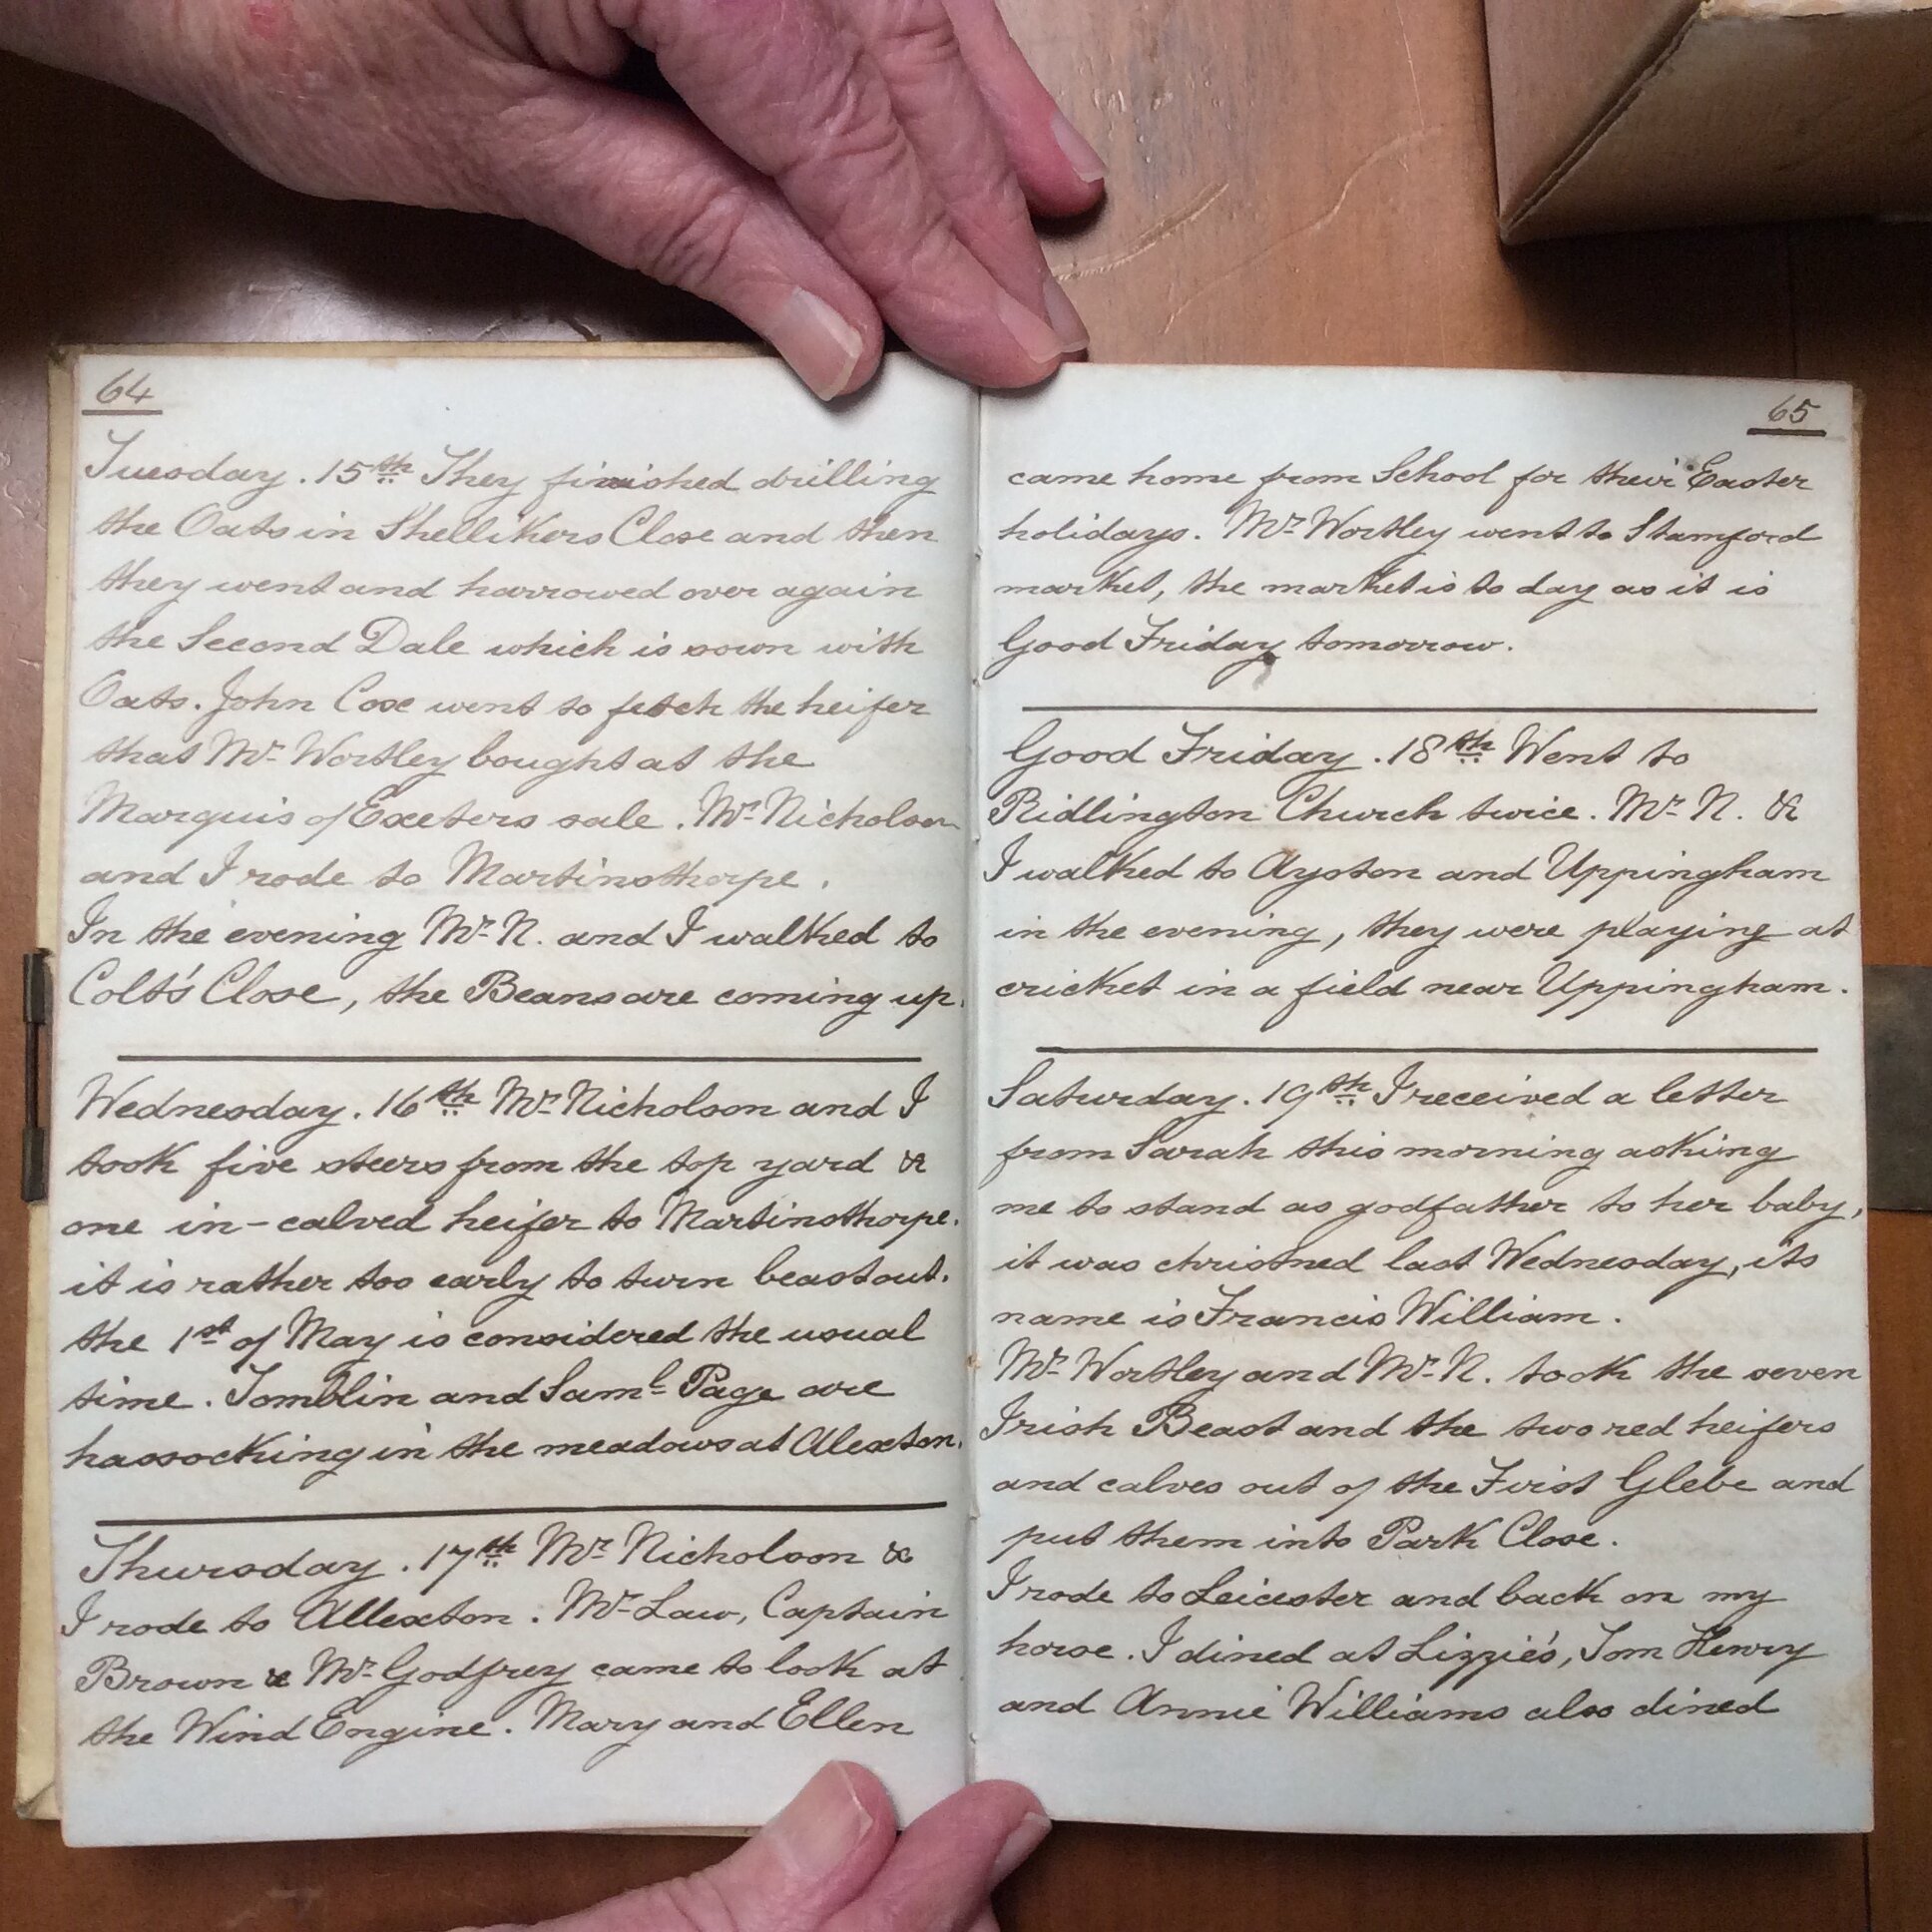 64
Tuesday. 15th They finished drilling
the Oats in Shellikers Close and then
they went and harrowed over again
the Second Dale which is sown with
Oats. John Cox went to fetch the heifer
that Mr. Wortley bought at the
Marquis of Exeters sale. Mr. Nicholson
and I rode to Martinsthorpe.
In the evening Mr. N. and I walked to
Colt's Close, the Beans are coming up.
Wednesday. 16th Mr. Nicholson and I
took five steers from the top yard &
one in-calved heifer to Martinsthorpe.
it is rather too early to turn beast out.
the 1st of May is considered the usual
time. Tomblin and Saml. Page are
hassocking in the meadows at Alexton.
Thursday. 17th Mr. Nicholson &
I rode to Allexton. Mr. Law, Captain
Brown & Mr. Godfrey came to look at
the Wind Engine. Mary and Ellen
65
came home from School for their Easter
holidays. Mr. Wortley went to Stamford
market, the market is to day as it is
Good Friday tomorrow.
Good Friday. 18th Went to
Ridlington Church twice. Mr. N. &
I walked to Ayston and Uppingham
in the evening, they were playing at
cricket in a field near Uppingham.
Saturday. 19th I received a letter
from Sarah this morning asking
me to stand as godfather to her baby,
it was christned last Wednesday, its
name is Francis William.
Mr. Wortley and Mr. N. took the seven
Irish Beast and the two red heifers
and calves out of the First Glebe and
put them into Park Close.
I rode to Leicester and back on my
horse. I dined at Lizzie's, Tom Henry
and Annie Williams also dined